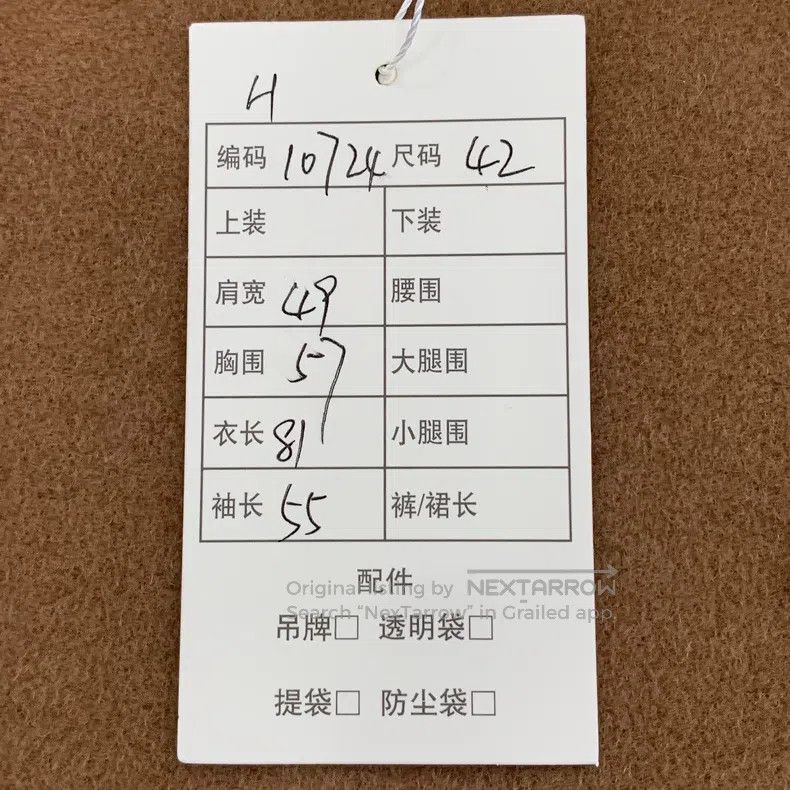 H
编码 10724 尺码 42
上装 下装
肩宽 49 腰围
胸围 57 大腿围
衣长 81 小腿围
袖长 55 裤/裙长
配件
Original listing by NEXTARROW
Search “NexTarrow” in Grailed app.
吊牌□ 透明袋□
提袋□ 防尘袋□